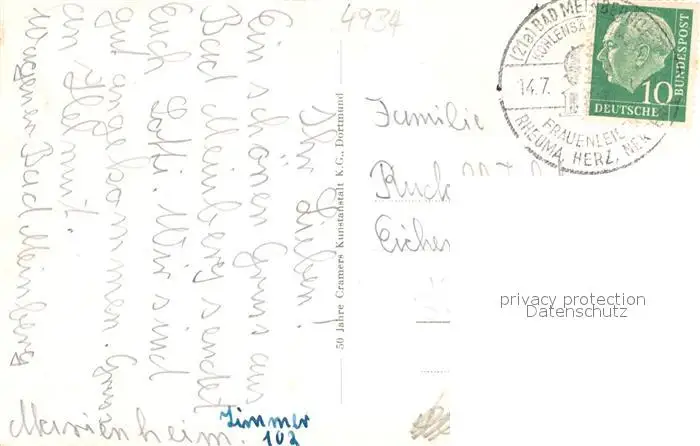 4934
Ihr Lieben!
Ein schönen Gruss aus
Bad Meinberg sendet
Euch Lotti. Wir sind
gut angekommen. Gruss
an Helmut.
Bad Meinberg
Marienheim.
Zimmer
102
50 Jahre Cramers Kunstanstalt K.G., Dortmund
Familie
Eichen
(21a) BAD MEINBERG
KOHLENSÄ
14.7.
FRAUENLEI
RHEUMA, HERZ,
10
DEUTSCHE
BUNDESPOST
privacy protection
Datenschutz